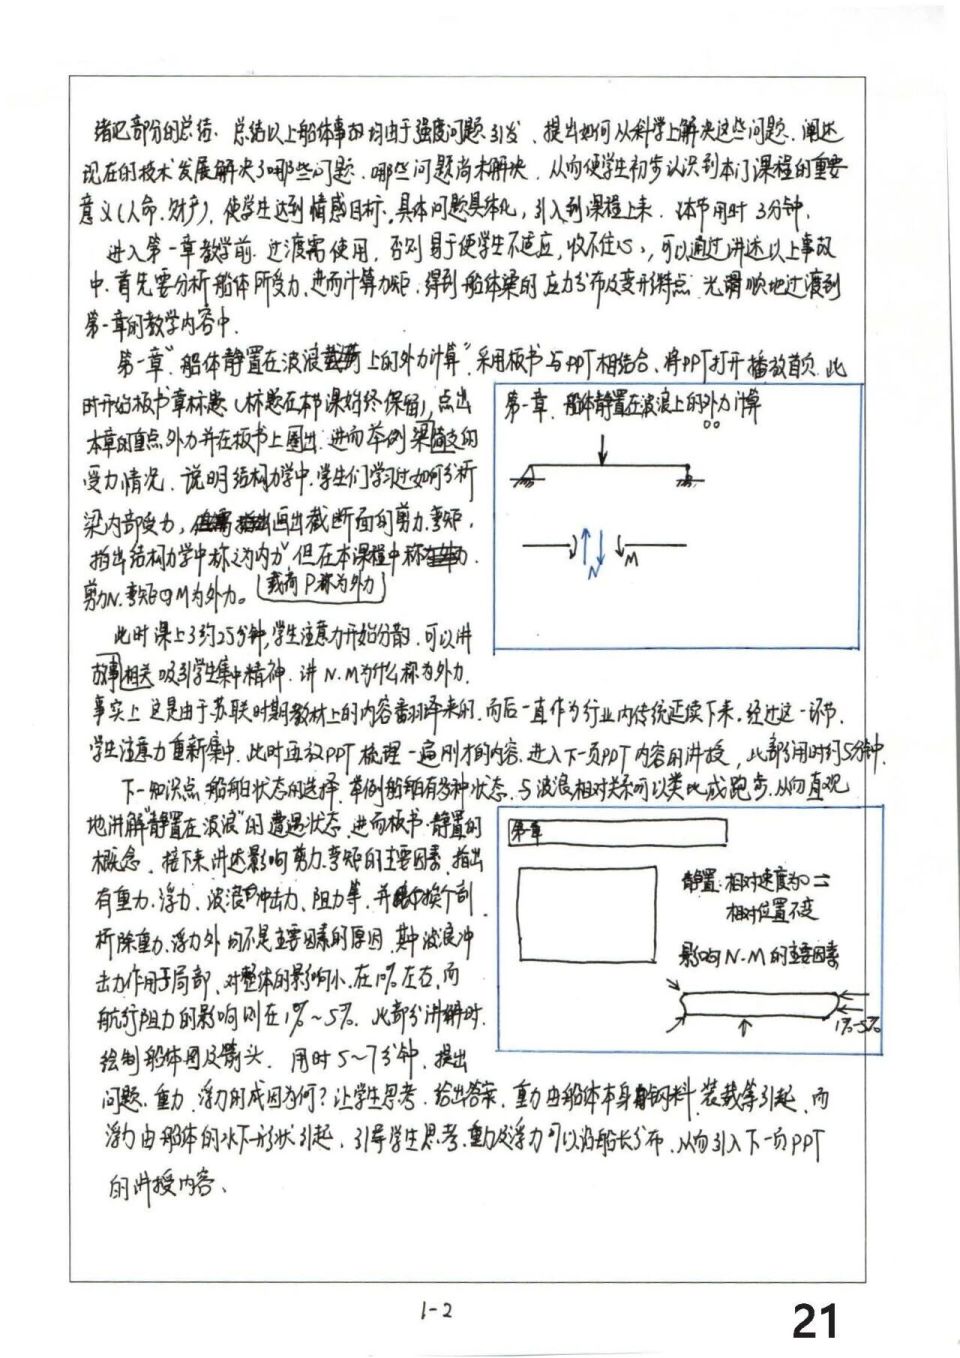 绪论部分的总结. 总结以上船体事故均由于强度问题引发、提出如何从科学上解决这些问题. 阐述
现在的技术发展解决了哪些问题、哪些问题尚未解决、从而使学生初步认识到本门课程的重要
意义(人命、财产)、使学生达到情感目标、具体问题具体化, 引入到课程上来. 本节用时3分钟.
进入第一章教学前. 过渡需使用, 否则易于使学生不适应, 收不住心, 可以通过讲述以上事故
中. 首先要分析船体所受力、进而计算力矩、得到船体梁的应力分布及变形特点. 光滑顺地过渡到
第一章的教学内容中.
第一章"船体静置在波浪上的外力计算"采用板书与PPT相结合、将PPT打开播放首页. 此
时开始板书章标题(标题在本节课始终保留), 点出
本章的重点外力并在板书上圈出. 进而举例梁简支的
受力情况、说明结构力学中, 学生们学习过如何分析
梁内部受力, 画出截断面的剪力、弯矩,
指出结构力学中称之为"内力", 但在本课程中称
剪力N. 弯矩M为外力。 载荷P称为外力
此时课上了约25分钟, 学生注意力开始分散、可以讲
故事相关吸引学生集中精神. 讲N. M为什么称为外力.
事实上 这是由于苏联时期教材上的内容翻译来的. 而后一直作为行业内传统延续下来. 经过这一环节.
学生注意力重新集中. 此时再放PPT梳理一遍刚才的内容. 进入下一页PPT内容的讲授, 此部分用时约5分钟.
下一知识点 船舶状态的选择. 举例船舶有各种状态、与波浪相对关系可以类比成跑步. 从而直观
地讲解"静置在波浪"的遭遇状态. 进而板书. 静置的
概念、接下来讲述影响剪力、弯矩的主要因素、指出
有重力、浮力、波浪冲击力、阻力等、并换个剖
析除重力、浮力外均不是主要因素的原因、其中波浪冲
击力作用于局部、对整体的影响小、在1%左右、而
航行阻力的影响则在1%~5%. 此部分讲解时.
绘制船体图及箭头. 用时5~7分钟. 提出
问题、重力、浮力的成因为何? 让学生思考. 给出答案. 重力由船体本身钢料、装载等引起、而
浮力由船体的水下形状引起、引导学生思考. 重力及浮力可以沿船长分布、从而引入下一页PPT
的讲授内容、
第一章. 船体静置在波浪上的外力计算
N
M
第一章
静置: 相对速度为0 =
相对位置不变
影响N. M的主要因素
1%-5%
1-2
21